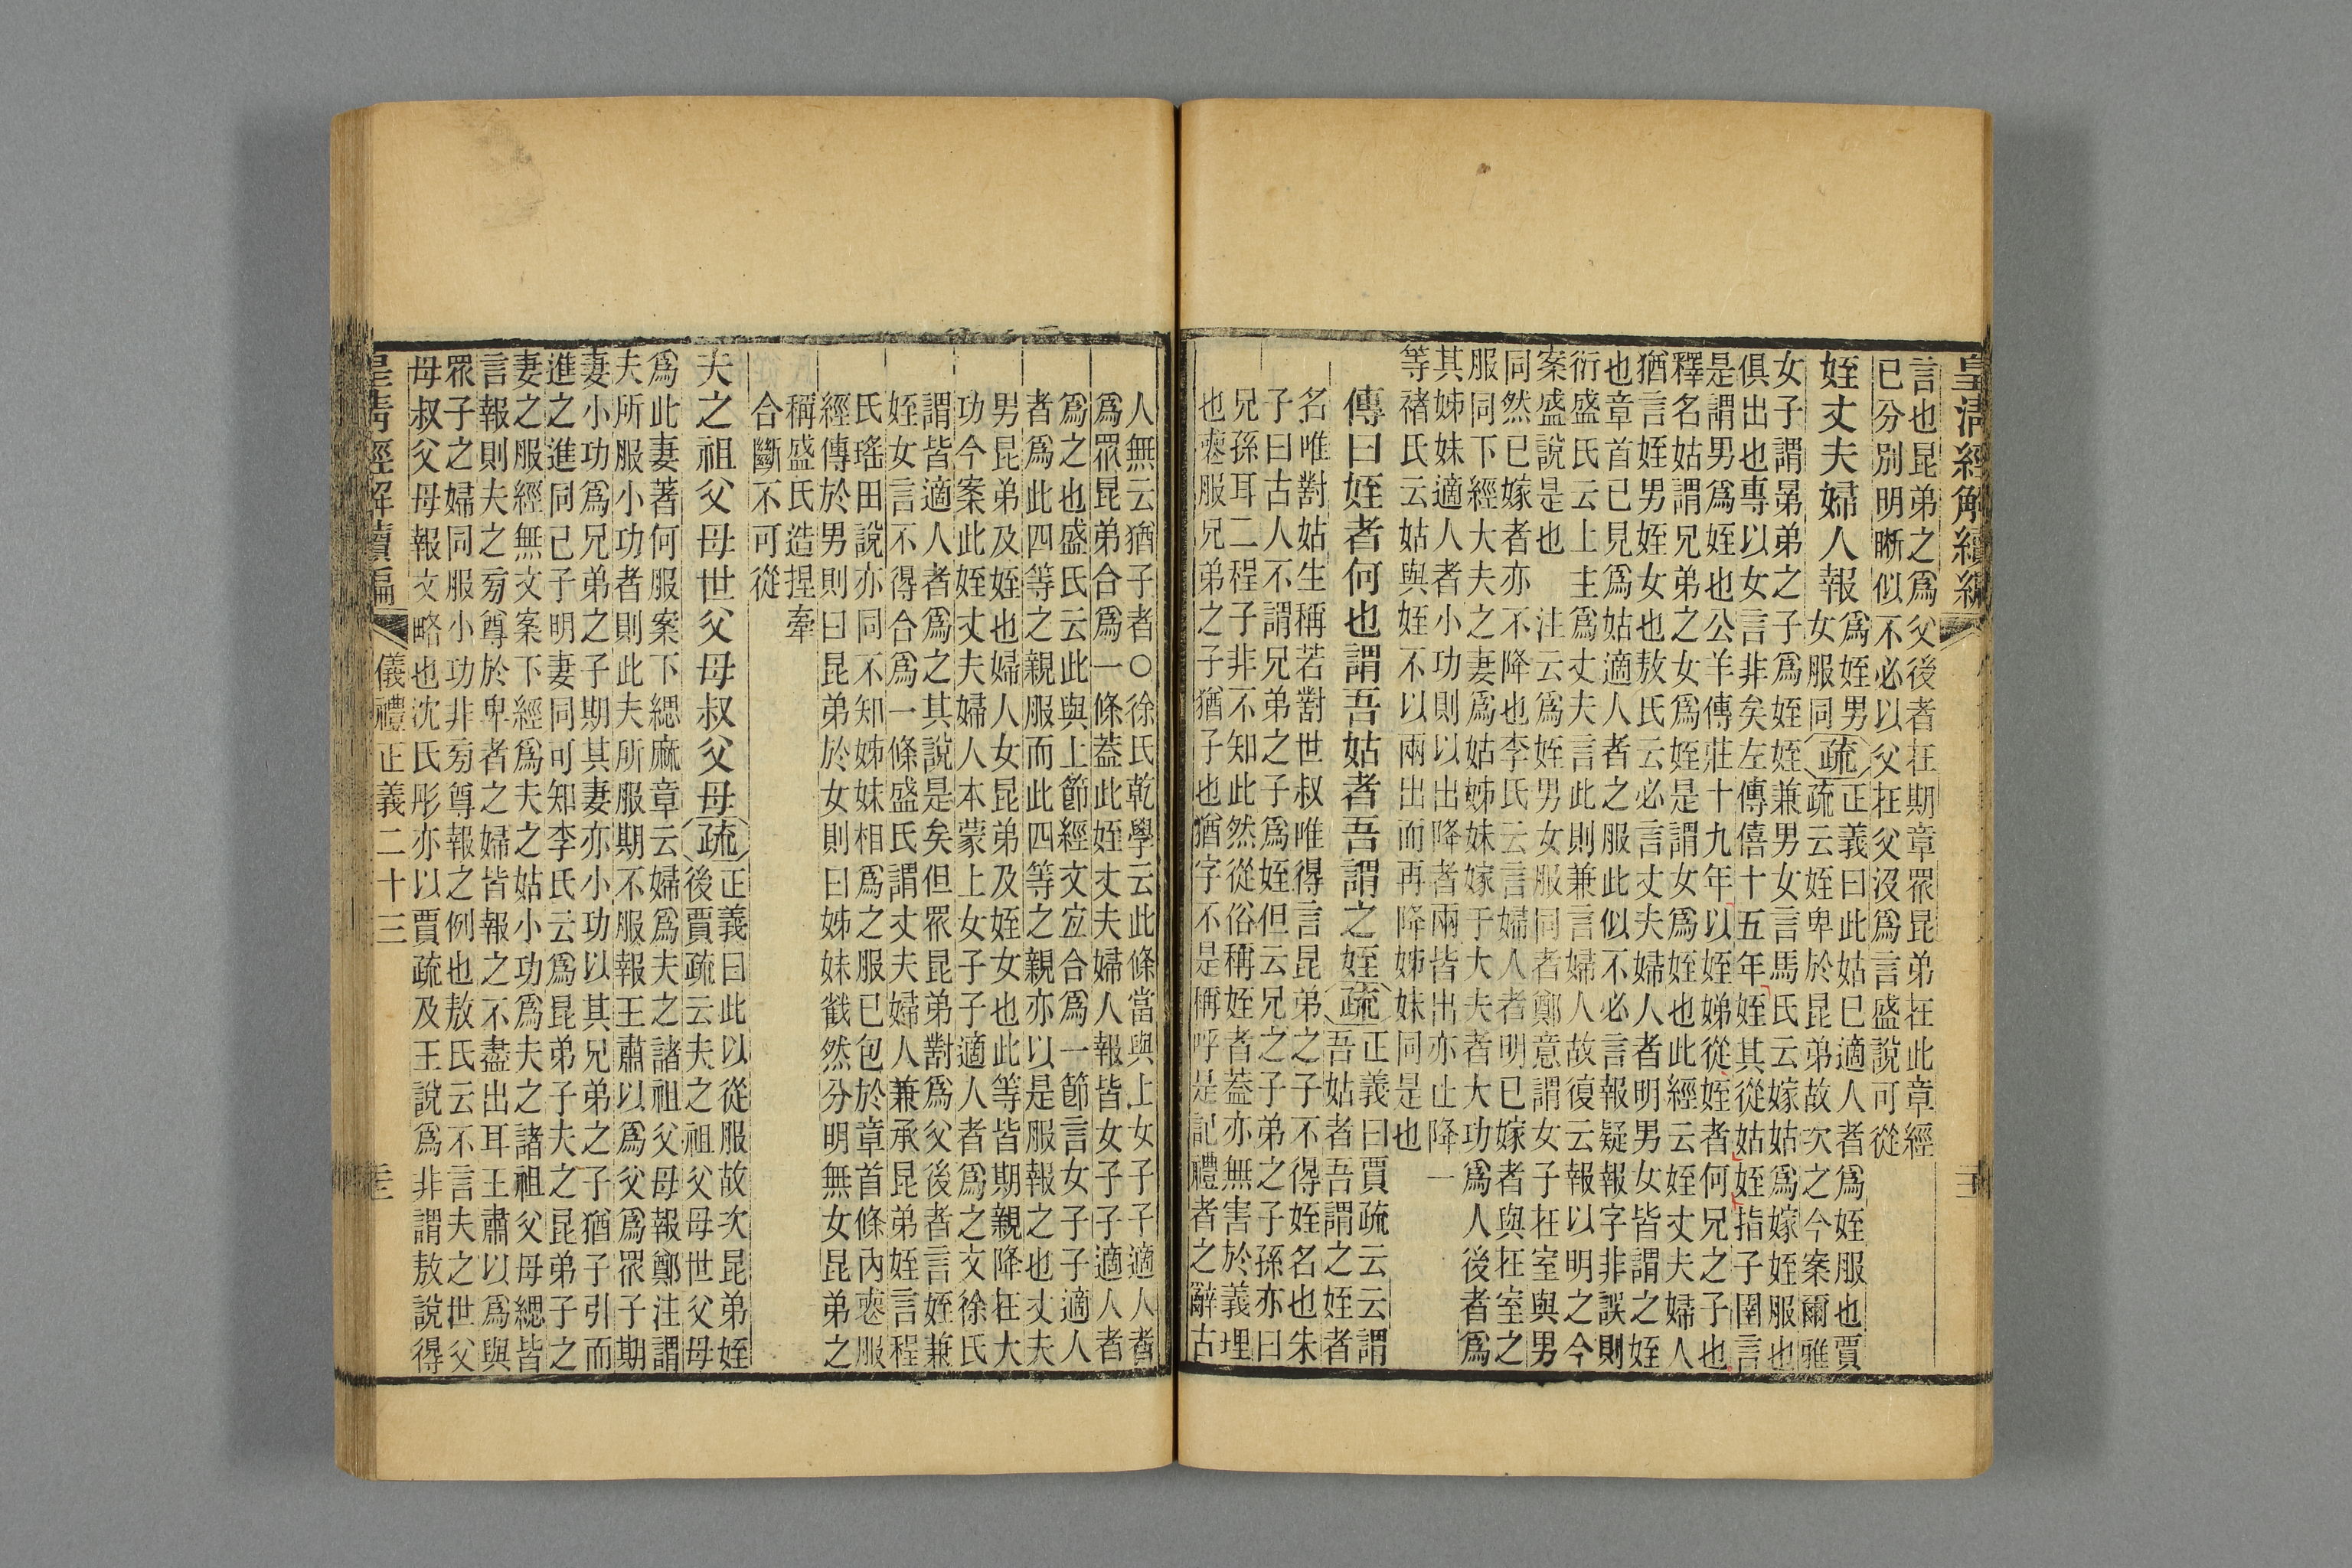 皇清經解續編
言也昆弟之爲父後者在期章眾昆弟在此章經
已分別明晰似不必以父在父沒爲言盛說可從
姪丈夫婦人報
爲姪男
女服同
疏
正義曰此姑已適人者爲姪服也賈
疏云姪卑於昆弟故次之今案爾雅
女子謂晜弟之子爲姪姪兼男女言馬氏云嫁姑爲嫁姪服也
俱出也專以女言非矣左傳僖十五年姪其從姑姪指子圉言
是謂男爲姪也公羊傳莊十九年以姪娣從姪者何兄之子也
釋名姑謂兄弟之女爲姪是謂女爲姪也此經云姪丈夫婦人
猶言姪男姪女也敖氏云必言丈夫婦人者明男女皆謂之姪
也章首已見爲姑適人者之服此似不必言報疑報字非誤則
衍盛氏云上主爲丈夫言此則兼言婦人故復云報以明之今
案盛說是也　注云爲姪男女服同者鄭意謂女子在室與男
同然已嫁者亦不降也李氏云言婦人者明已嫁者與在室之
服同下經大夫之妻爲姑姊妹嫁于大夫者大功爲人後者爲
其姊妹適人者小功則以出降者兩皆出亦止降一
等褚氏云姑與姪不以兩出而再降姊妹同是也
傳曰姪者何也謂吾姑者吾謂之姪
疏
正義曰賈疏云云謂
吾姑者吾謂之姪者
名唯對姑生稱若對世叔唯得言昆弟之子不得姪名也朱
子曰古人不謂兄弟之子爲姪但云兄之子弟之子孫亦曰
兄孫耳二程子非不知此然從俗稱姪者蓋亦無害於義理
也喪服兄弟之子猶子也猶字不是稱呼是記禮者之辭古
人無云猶子者○徐氏乾學云此條當與上女子子適人者
爲眾昆弟合爲一條蓋此姪丈夫婦人報皆女子子適人者
爲之也盛氏云此與上節經文宜合爲一節言女子子適人
者爲此四等之親服而此四等之親亦以是服報之也丈夫
男昆弟及姪也婦人女昆弟及姪女也此等皆期親降在大
功今案此姪丈夫婦人本蒙上女子子適人者爲之文徐氏
謂皆適人者爲之其說是矣但眾昆弟對爲父後者言姪兼
姪女言不得合爲一條盛氏謂丈夫婦人兼承昆弟姪言程
氏瑤田說亦同不知姊妹相爲之服已包於章首條內喪服
經傳於男則曰昆弟於女則曰姊妹截然分明無女昆弟之
稱盛氏造捏牽
合斷不可從
夫之祖父母世父母叔父母
疏
正義曰此以從服故次昆弟姪
後賈疏云夫之祖父母世父母
爲此妻著何服案下緦麻章云婦爲夫之諸祖父母報鄭注謂
夫所服小功者則此夫所服期不服報王肅以爲父爲眾子期
妻小功爲兄弟之子期其妻亦小功以其兄弟之子猶子引而
進之進同已子明妻同可知李氏云爲昆弟子夫之昆弟子之
妻之服經無文案下經爲夫之姑小功爲夫之諸祖父母緦皆
言報則夫之旁尊於卑者之婦皆報之不盡出耳王肅以爲與
眾子之婦同服小功非旁尊報之例也敖氏云不言夫之世父
母叔父母報文略也沈氏彤亦以賈疏及王說爲非謂敖說得
皇清經解續編
儀禮正義二十三